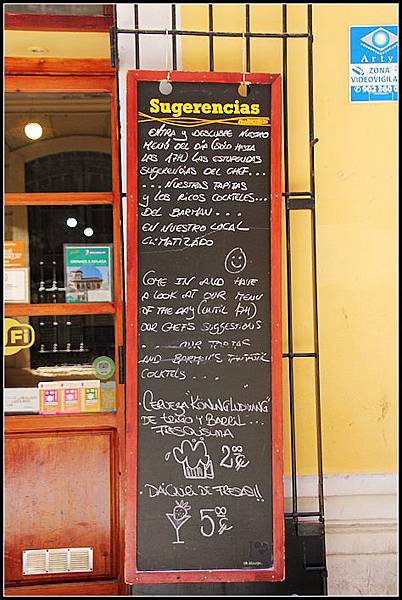 Sugerencias
ENTRA Y DESCUBRE NUESTRO
MENÚ DEL DÍA (SOLO HASTA
LAS 17H) LAS ESTUPENDAS
SUGERENCIAS DEL CHEF...
... NUESTRAS TAPITAS
Y LOS RICOS COCKTELES...
DEL BARMAN...
EN NUESTRO LOCAL
CLIMATIZADO
COME IN AND HAVE
A LOOK AT OUR MENU
OF THE DAY (UNTIL
OUR CHEFS SUGGESTIONS
... OUR TAPAS
AND BARMAN'S FANTASTIC
COCKTELS....
CERVEZA "KONING LUDWING"
DE TRIGO Y BARRIL...
FRESQUISIMA
2€
DAIQUIRI DE FRESAS!!
5€
Arty
ZONA
VIDEOVIGILA
902 360 0
Fi